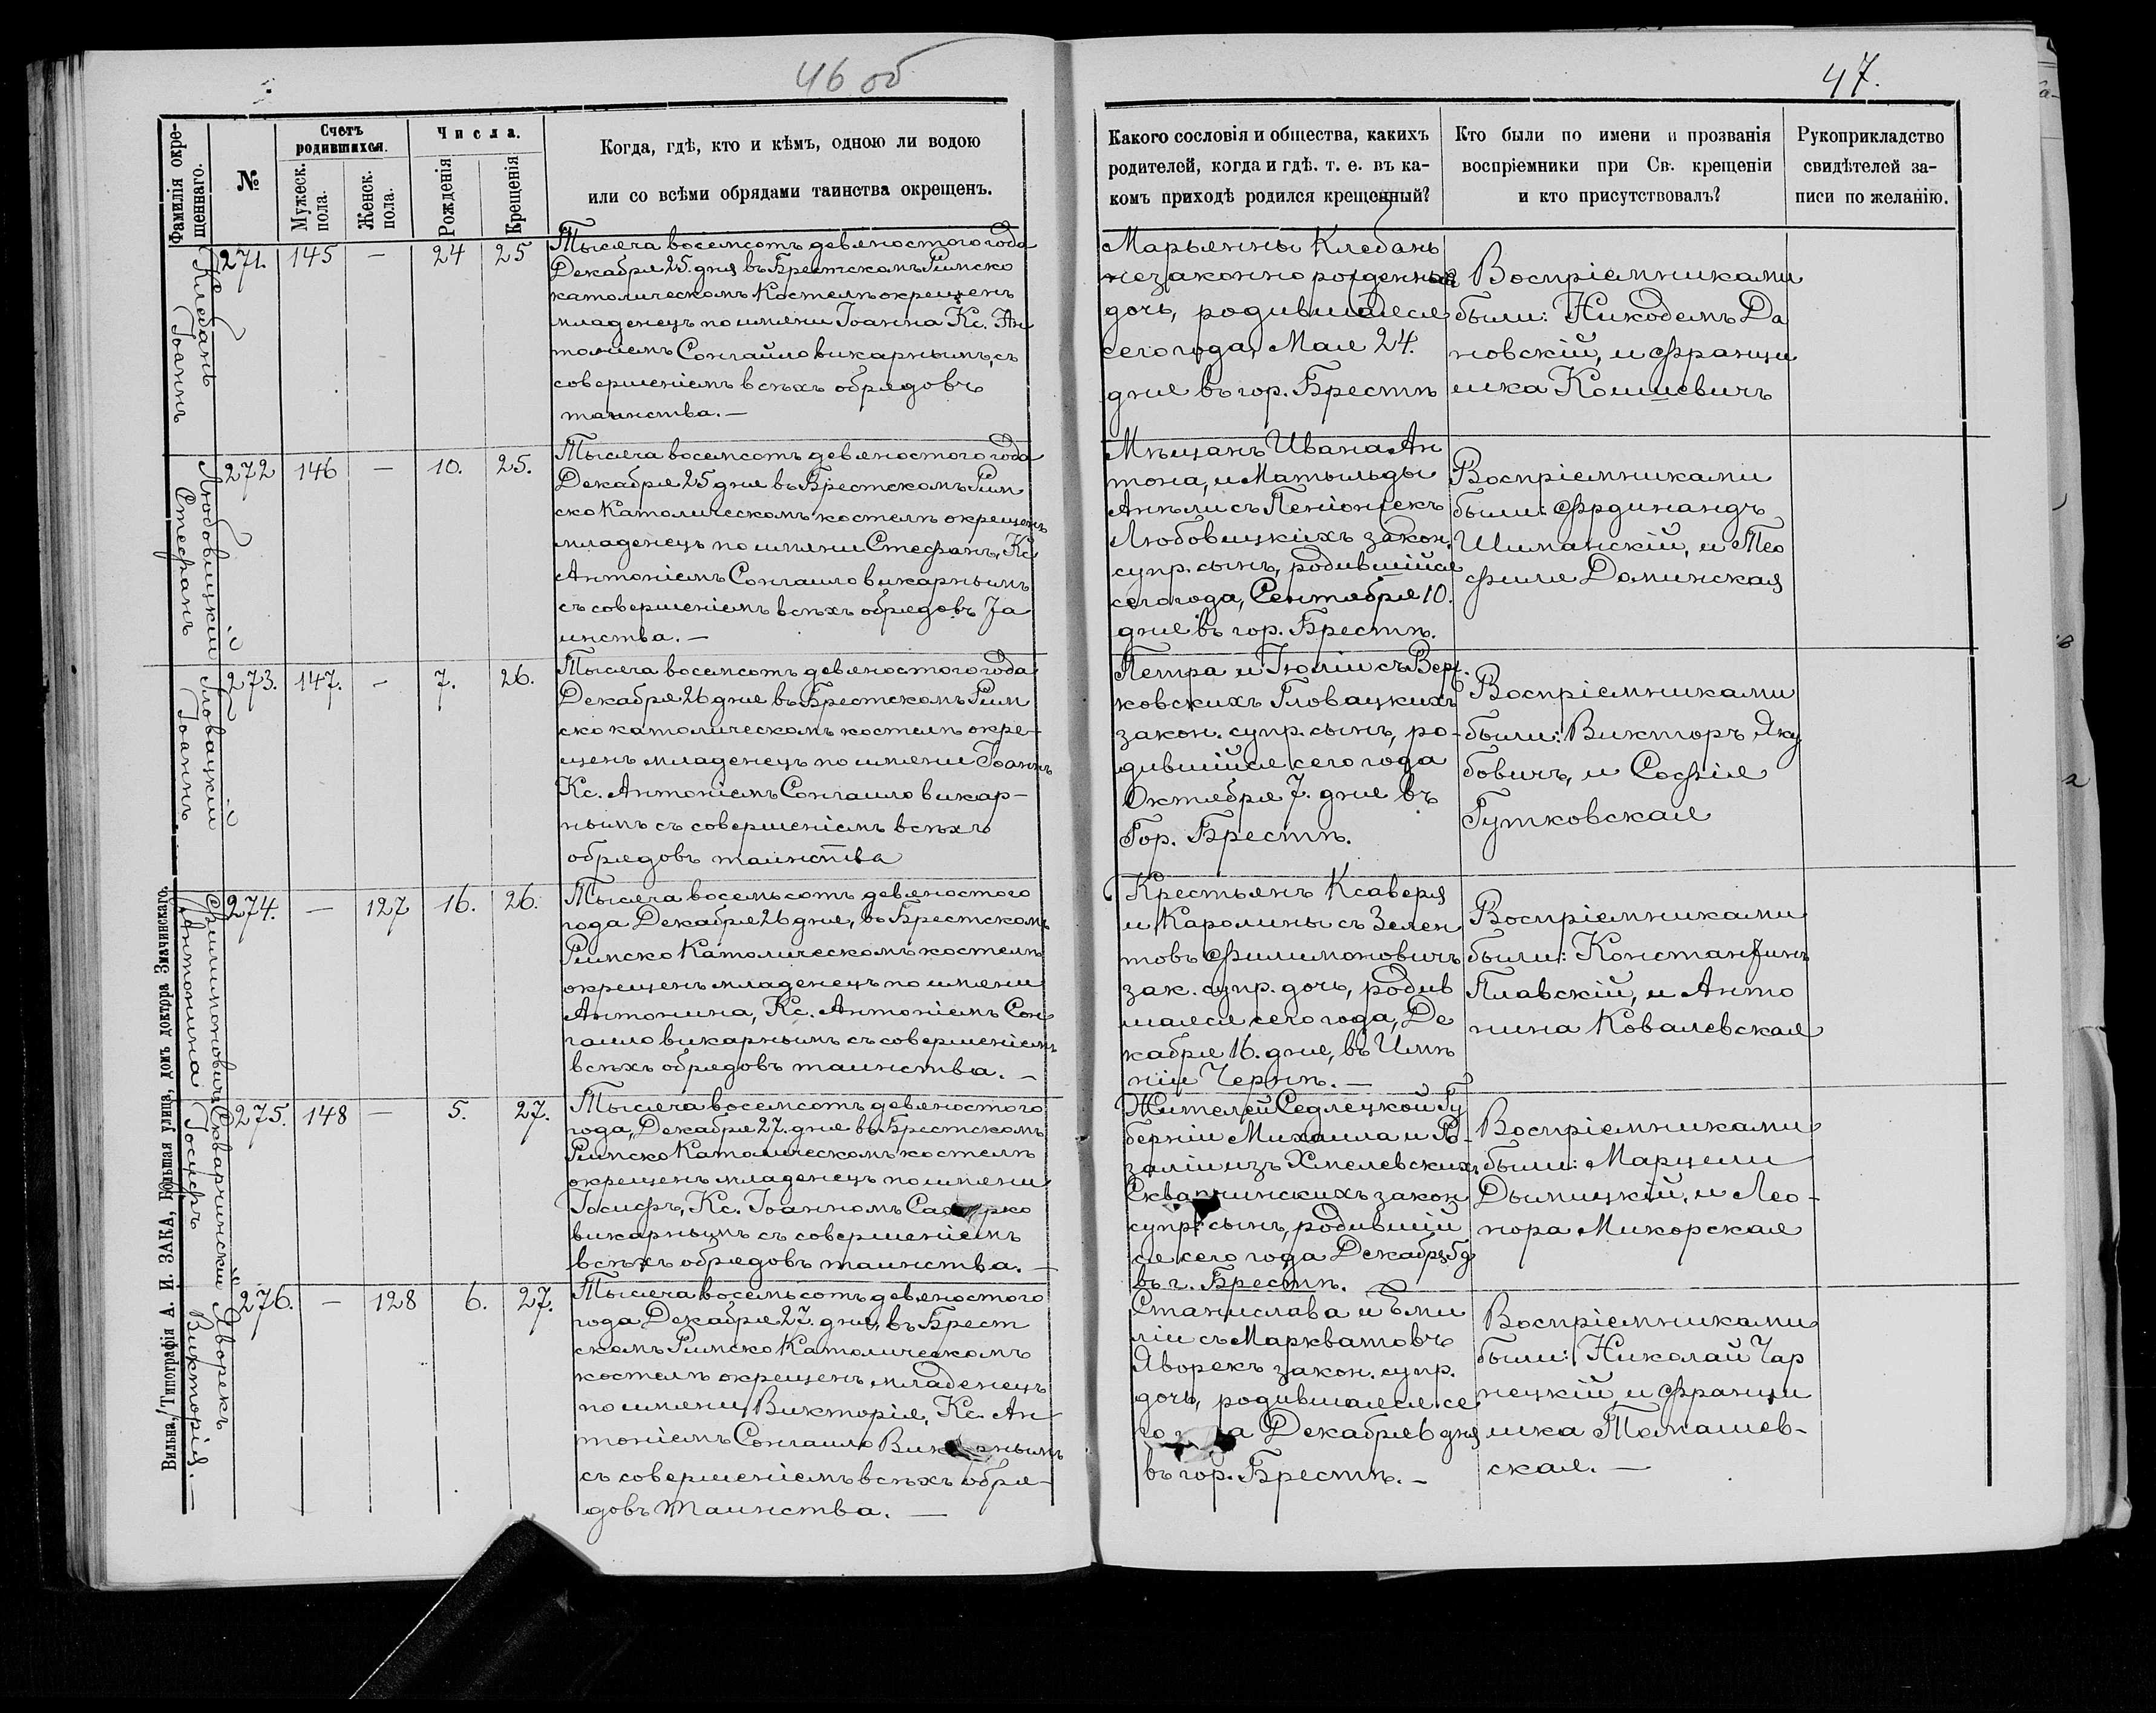 46 об
47.
Фамилія окре-
щеннаго.
№
Счетъ
родившихся.
Мужеск.
пола.
Женск.
пола.
Числа.
Рожденія
Крещенія
Когда, гдѣ, кто и кѣмъ, одною ли водою
или со всѣми обрядами таинства окрещенъ.
Какого сословія и общества, какихъ
родителей, когда и гдѣ. т. е. въ ка-
комъ приходѣ родился крещенный?
Кто были по имени и прозванія
воспріемники при Св. крещеніи
и кто присутствовалъ?
Рукоприкладство
свидѣтелей за-
писи по желанію.
Клебанъ
Іоаннъ
271. 145 — 24 25
Тысяча восемсотъ девяностого года
Декабря 25. дня въ Брестскомъ Римско
католическомъ Костелѣ окрещенъ
младенецъ по имени Іоанна Кс. Ан
тоніемъ Сонгайло викарнымъ, съ
совершеніемъ всѣхъ обрядовъ
таинства. —
Марьянны Клебанъ
незаконно рожденная
дочь, родившаяся
сего года, Мая 24.
дня въ гор. Брестѣ
Воспріемниками
были: Никодемъ Да
новскій, и Франци
шка Комшевичъ
Любовицкій
Стефанъ
272 146 — 10. 25.
Тысяча восемсотъ девяностого года
Декабря 25 дня въ Брестскомъ Рим
ско Католическомъ костелѣ окрещенъ
младенецъ по имени Стефанъ, Кс.
Антоніемъ Сонгаило викарнымъ
съ совершеніемъ всѣхъ обрядовъ Та
инства. —
Мѣщанъ Ивана Ан
тона, и Матыльды
Анѣли съ Пеніонжекъ
Любовицкихъ закон.
супр. сынъ, родившійся
сего года, Сентября 10.
дня въ гор. Брестѣ.
Воспріемниками
были: Фрдинандъ
Шиманскій, и Тео
филя Доминская
Гловацкій
Іоаннъ.
273. 147. — 7. 26.
Тысяча восемсотъ девяностого года
Декабря 26 дня въ Брестскомъ Рим
ско католическомъ костелѣ окре-
щенъ младенецъ по имени Іоаннъ
Кс. Антоніемъ Сонгаило викар-
нымъ съ совершеніемъ всѣхъ
обрядовъ таинства
Петра и Іюліи съ Вер
ковскихъ Гловацкихъ
закон. супр. сынъ, ро-
дившійся сего года
Октября 7. дня въ
Гор. Брестѣ.
Воспріемниками
были: Викторъ Яку
бовичъ, и Софія
Гутковская
Филимоновичъ
Антонина
274. — 127 16. 26.
Тысяча восемьсотъ девяностого
года Декабря 26 дня, въ Брестскомъ
Римско Католическомъ костелѣ
окрещенъ младенецъ по имени
Антонина, Кс. Антоніемъ Сон
гаило викарнымъ съ совершеніемъ
всѣхъ обрядовъ таинства. —
Крестьянъ Ксаверія
и Каролины съ Зелен
товъ Филимоновичъ
зак. супр. дочь, родив
шаяся сего года, Де
кабря 16. дня, въ Имѣ
ніи Чернѣ. —
Воспріемниками
были: Константинъ
Плавскій, и Анто
нина Ковалевская
Скварчинскій
Іосифъ
275. 148 — 5. 27.
Тысяча восемсотъ девяностого
года, Декабря 27. дня въ Брестскомъ
Римско Католическомъ костелѣ
окрещенъ младенецъ по имени
Іосифъ, Кс. Іоанномъ
викарнымъ съ совершеніемъ
всѣхъ обрядовъ таинства. —
Жителей Седлецкой Гу
берніи Михаила и Ро-
заліи изъ Хмелевскихъ
Скварчинскихъ закон
супр. сынъ, родившій
ся сего года Декабря
въ г. Брестѣ.
Воспріемниками
были: Марцели
Дымицкій, и Лео-
нора Микорская
Яворекъ
Викторія. —
276. — 128 6. 27.
Тысяча восемьсотъ девяностого
года Декабря 27. дня, въ Брест
скомъ Римско Католическомъ
костелѣ окрещенъ младенецъ
по имени Викторія, Кс. Ан
тоніемъ Сонгаило Викарнымъ
съ совершеніемъ всѣхъ обря-
довъ таинства. —
Станислава и Эми
ліи съ Маркватовъ
Яворекъ закон. супр.
дочь, родившаяся се
го года Декабря 6 дня
въ гор. Брестѣ. —
Воспріемниками
были: Николай Чар
нецкій, и Франци
шка Томашев-
ская. —
Вильна, Типографія А. И. ЗАКА, Большая улица, домъ доктора Значинскаго.